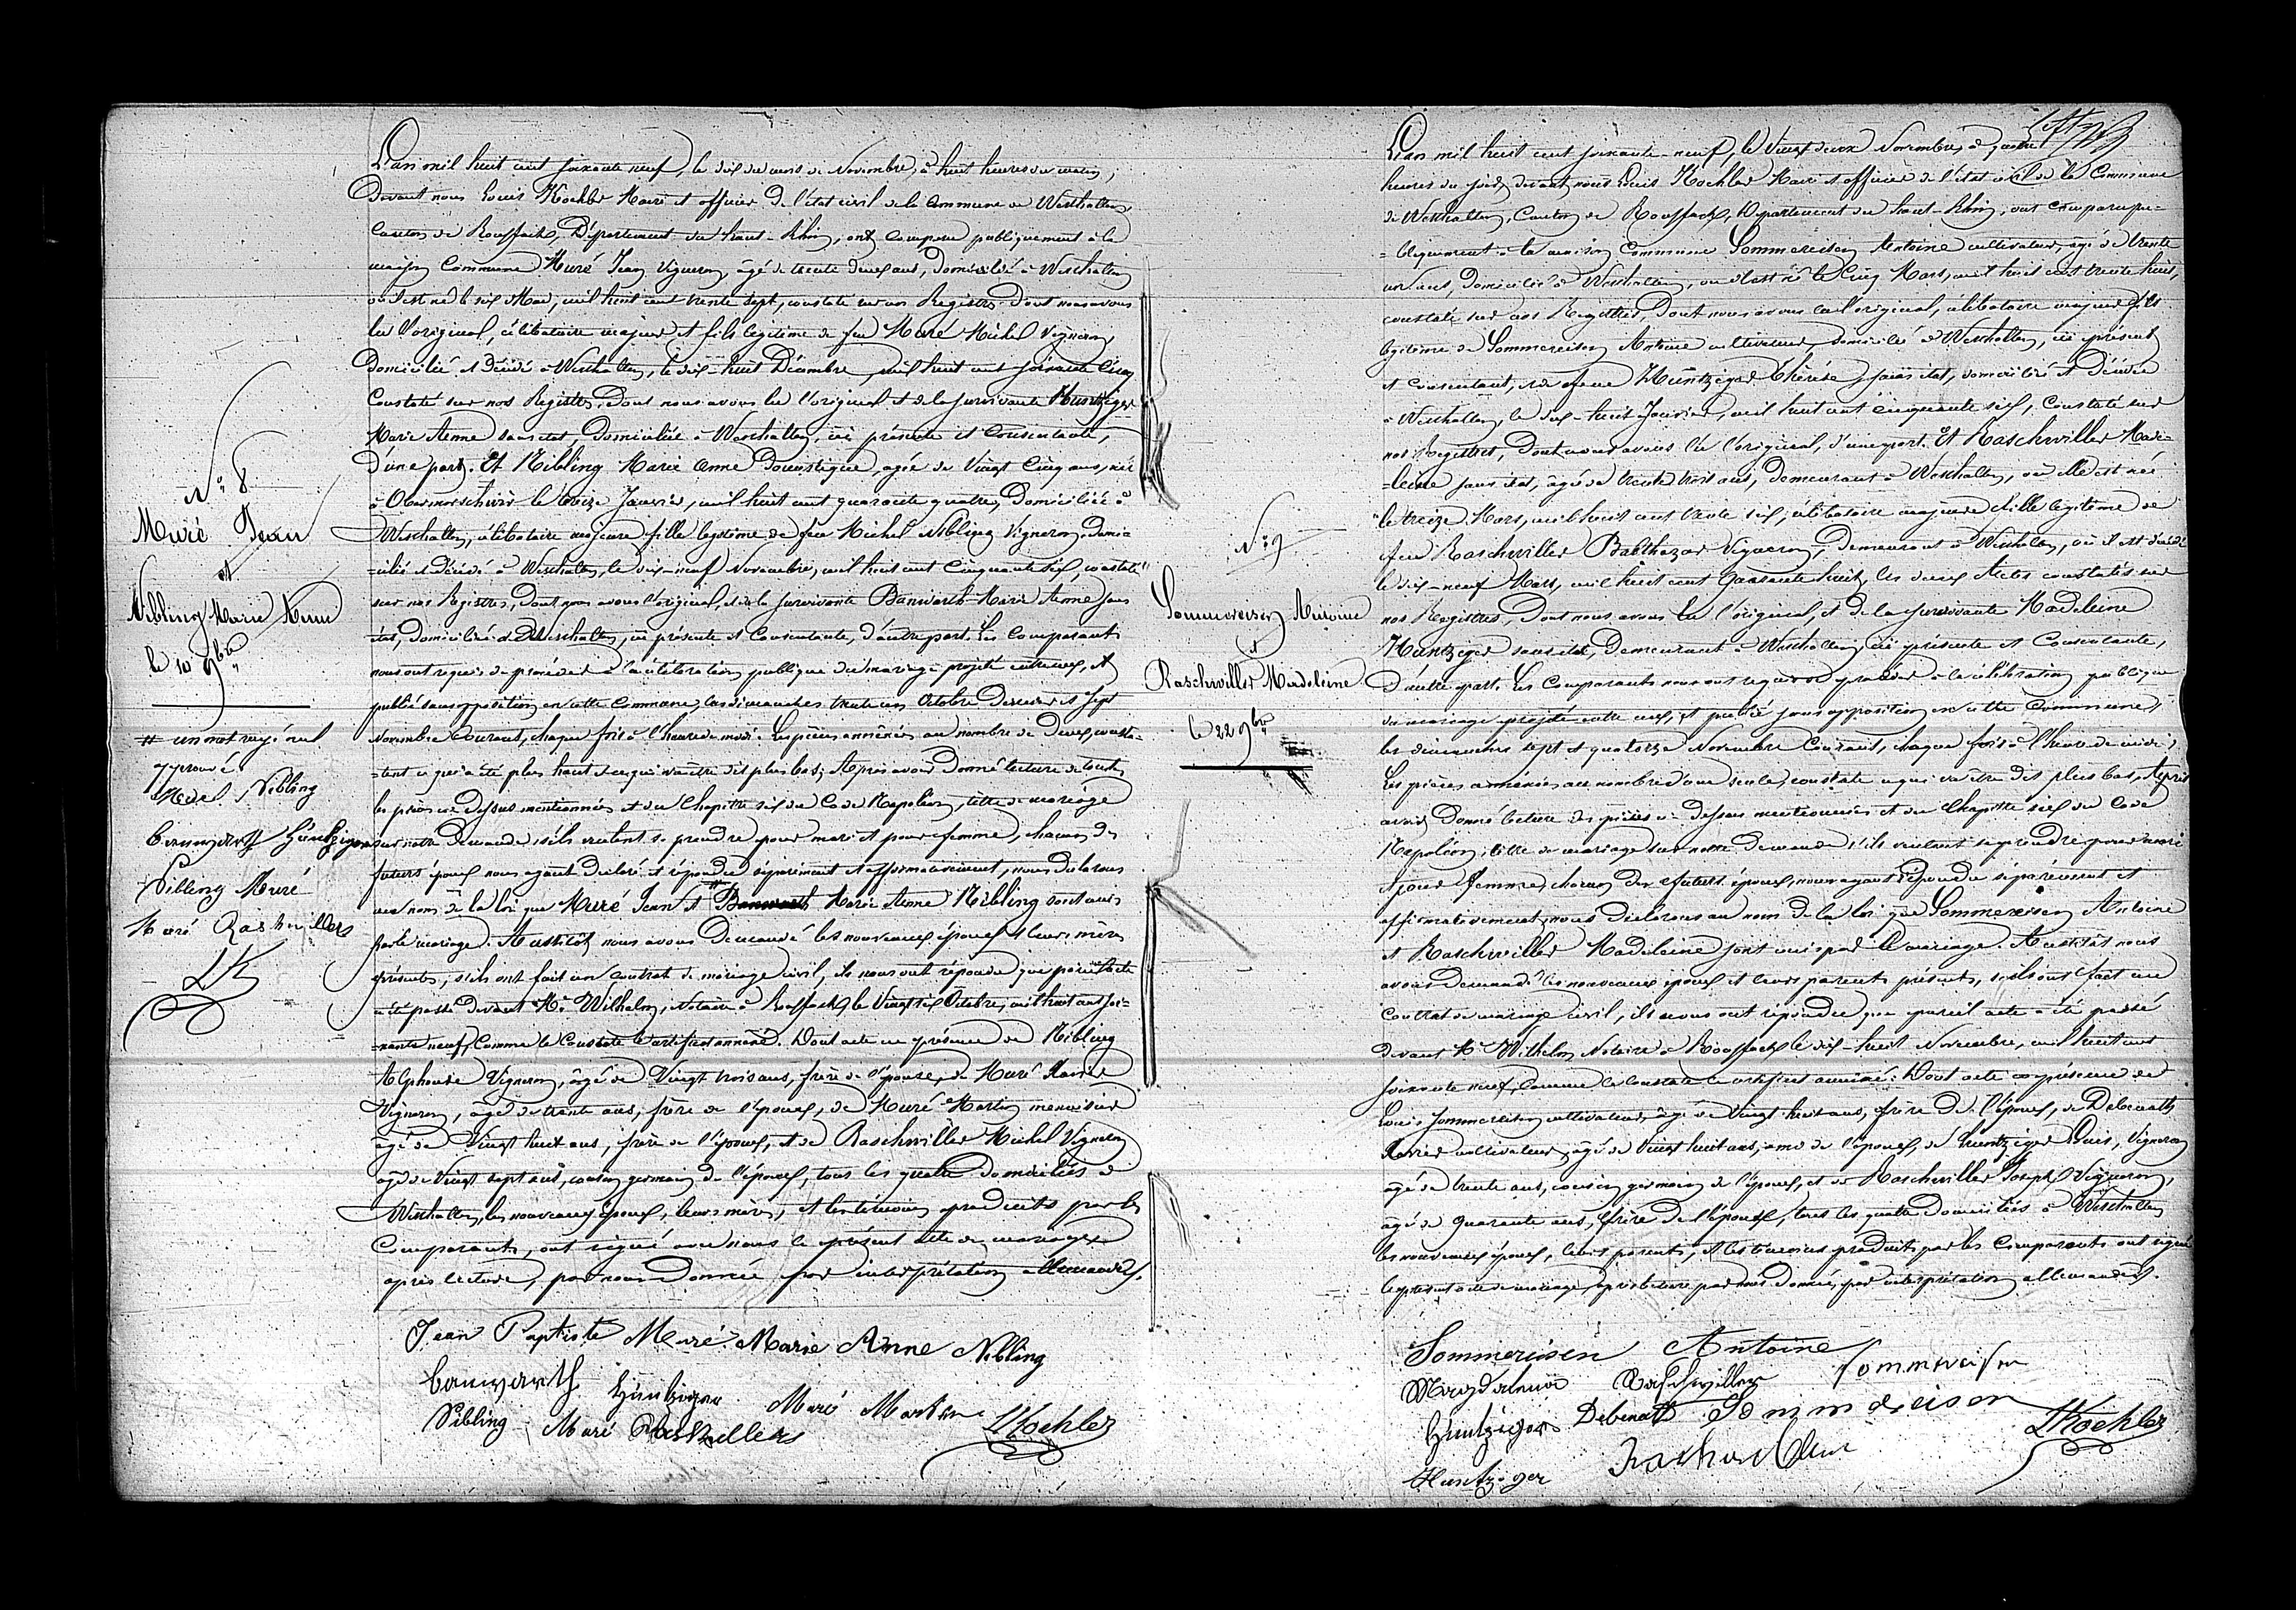 N.° 8
Muré Jean
et
Nibling Marie Anne
le 10 9bre
# un mot rayé nul
approuvé.
Nibling
Banwarth Hüntziger
Nibling Muré
Muré Raschwillers
LK
L'an mil huit cent soixante neuf, le dix du mois de Novembre, à huit heures du matin,
Devant nous Louis Koehler Maire et officier de l'état civil de la Commune de Westhalten,
Canton de Rouffach, Département du haut-Rhin, ont comparu publiquement à la
maison Commune Muré Jean Vigneron âgé de trente deux ans, Domicilié à Westhalten
où il est né le six Mai, mil huit cent trente sept, constaté sur nos Registres Dont nous avons
lu l'original, célibataire majeur et fils légitime de feu Muré Michel Vigneron,
Domicilié et Décédé à Westhalten, le dix-huit Décembre, mil huit cent soixante Cinq
Constaté sur nos Registres, Dont nous avons lu l'original et de la survivante Huntziger
Marie Anne sans état, Domiciliée à Westhalten, ici présente et Consentante,
D'une part. Et Nibling Marie Anne Domestique, agée de Vingt Cinq ans, née
à Obermorschwir le treize Janvier, mil huit cent quarante quatre, Domiciliée à
Westhalten, célibataire majeure fille legitime de feu Michel Nibling Vigneron, domi=
=cilié et Décédé à Westhalten, le dix-neuf Novembre, mil huit cent Cinquante six, constaté
sur nos Registres, Dont nous avons l'original, et de la survivante Banwarth Marie Anne sans
état, domiciliée à Westhalten, ici présente et Consentante, d'autre part. Les Comparants
nous ont requis de procéder à la célébration publique du mariage projeté entre eux, et
publié sans opposition en cette Commune, les dimanches trente un Octobre dernier et Sept
Novembre Courant, chaque fois à l'heure de midi. Les pièces annéxées au nombre de Deux, consta=
=tent ce qui a été plus haut et ce qui va être dit plus bas; Après avoir Donné lecture de toutes
les pièces ci-dessus mentionnées et du Chapitre six du Code Napoléon, titre du mariage
sur notre Demande s'ils veulent se prendre pour mari et pour femme, chacun des
futurs époux nous ayant déclaré et répondu séparément et affirmativement, nous declarons
au nom de la loi que Muré Jean et # Banwarth Marie Anne Nibling sont unis
par le mariage. Aussitôt nous avons Demandé les nouveaux époux et leurs mères
présentes, s'ils ont fait un Contrat de mariage civil, ils nous ont répondu que pareil acte
a été passé devant Me Wilhelm, Notaire à Rouffach, le Vingt six Octobre, mil huit cent soi=
=xante neuf, Comme le Constate le certificat annéxé. Dont acte en présence de Nibling
Alphonse Vigneron, âgé de Vingt trois ans, frère de l'épouse, de Muré Xavier
Vigneron, âgé de trente ans, frère de l'époux, de Muré Martin menuisier
âgé de Vingt huit ans, frère de l'époux, et de Raschwiller Michel Vigneron
âgé de Vingt sept ans, cousin germain de l'époux, tous les quatre domiciliés à
Westhalten, les nouveaux époux, leurs mères, et les témoins produits par les
Comparants, ont signé avec nous le présent acte de mariage
après lecture, par nous Donnée par interprétation allemande.
Jean Baptiste Muré Marie Anne Nibling
Banwarth Hüntziger Muré Martin
Nibling Muré Raschwillers LKoehler
N.° 9
Sommereisen Antoine
et
Raschwiller Madeleine
le 22 9bre
L'an mil huit cent soixante-neuf, le Vingt deux Novembre, à quatre
heures du soir, devant nous Louis Koehler Maire et officier de l'état civil de la Commune
de Westhalten, Canton de Rouffach, Département du haut-Rhin, ont comparu pu=
=bliquement à la maison Commune Sommereisen Antoine cultivateur, âgé de trente
un ans, Domicilié à Westhalten, où il est né le Cinq Mars, mil huit cent trente huit,
constaté sur nos Registres, Dont nous avons lu l'original, célibataire majeur fils
légitime de Sommereisen Antoine cultivateur, domicilié à Westhalten, ici présent
et consentant, et de feue Huntziger Thérèse, sans état, domiciliée et Décédée
à Westhalten, le dix-huit Janvier, mil huit cent cinquante six, Constaté sur
nos Registres, Dont nous avons lu l'original, d'une part. Et Raschwiller Made=
=leine sans état, âgée de trente trois ans, demeurant à Westhalten, où elle est née
le treize Mars, mil huit cent trente six, célibataire majeure et fille légitime de
feu Raschwiller Balthazar Vigneron, Demeurant à Westhalten, où il est décédé
le dix-neuf Mars, mil huit cent Quarante huit, les deux Actes constatés sur
nos Registres, Dont nous avons lu l'original, et de la survivante Madeleine
Huntziger sans état, Demeurant à Westhalten, ici présente et Consentante,
d'autre part. Les Comparants nous ont requis de procéder à la célébration publique
du mariage projeté entre eux, et publié sans opposition en cette Commune,
les dimanches sept et quatorze Novembre Courant, chaque fois à l'heure de midi;
Les pièces annéxées au nombre d'une seule, constate ce qui va être dit plus bas. Après
avoir Donné lecture des pièces ci-dessus mentionnées et du Chapitre six du Code
Napoléon, titre du mariage sur notre Demande s'ils veulent se prendre pour mari
et pour femme, chacun des futurs époux, nous ayant répondu séparément et
affirmativement, nous declarons au nom de la loi que Sommereisen Antoine
et Raschwiller Madeleine sont unis par le mariage. Aussitôt nous
avons Demandé les nouveaux époux et leurs parents présents, s'ils ont fait un
Contrat de mariage civil, ils nous ont répondu que pareil acte a été passé
devant Me Wilhelm Notaire à Rouffach le dix-huit Novembre, mil huit cent
soixante neuf, comme le constate le certificat annéxé. Dont acte en présence de
Louis Sommereisen cultivateur, âgé de Vingt huit ans, frère de l'époux, de Debenath
Xavier cultivateur, âgé de Vingt huit ans, ami de l'époux, de Huntziger Louis, Vigneron
âgé de trente ans, cousin germain de l'époux, et de Raschwiller Joseph Vigneron,
âgé de quarante ans, frère de l'épouse, tous les quatre domiciliés à Westhalten
les nouveaux époux, leurs parents, et les témoins produits par les Comparants ont signé
le présent acte de mariage, après lecture par nous Donnée, par interprétation allemande.
Sommereisen Antoine
Magdalena Raschwiller Sommereisen
Hüntziger Debenath Sommereisen
Huntziger Raschwiller LKoehler